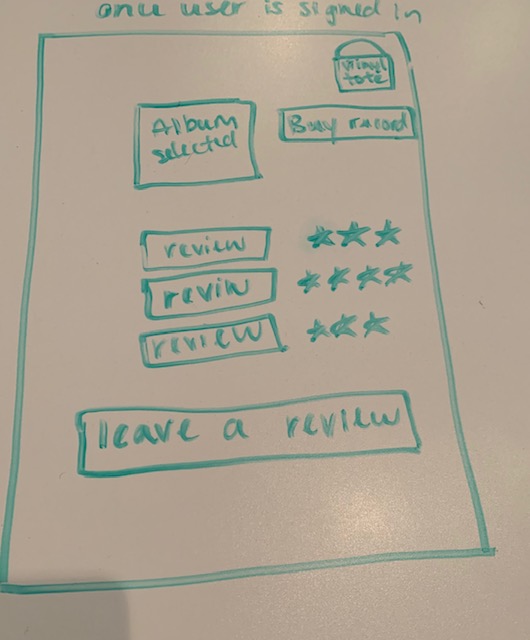 once user is signed in
vinyl
tote
Album
selected
Buy record
review
reviw
review
leave a review